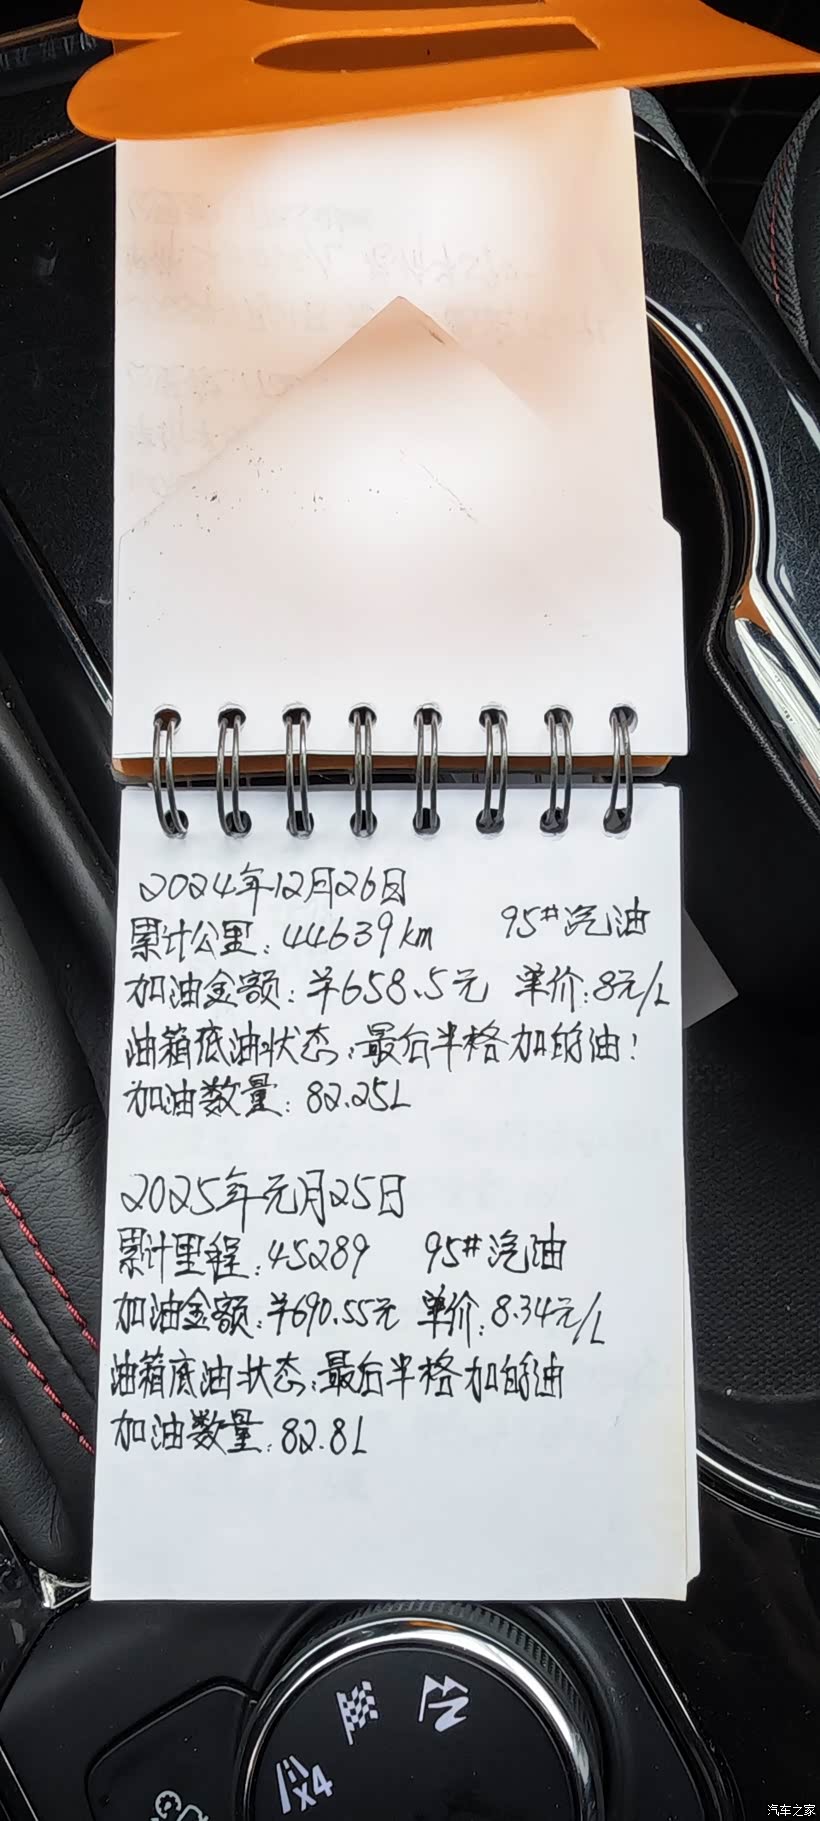 2024年12月26日
累计公里：44639km 95#汽油
加油金额：¥658.5元 单价：8元/L
油箱底油状态：最后半格加的油！
加油数量：82.25L
2025年元月25日
累计里程：45289 95#汽油
加油金额：¥690.55元 单价：8.34元/L
油箱底油状态：最后半格加的油
加油数量：82.8L
X4
汽车之家